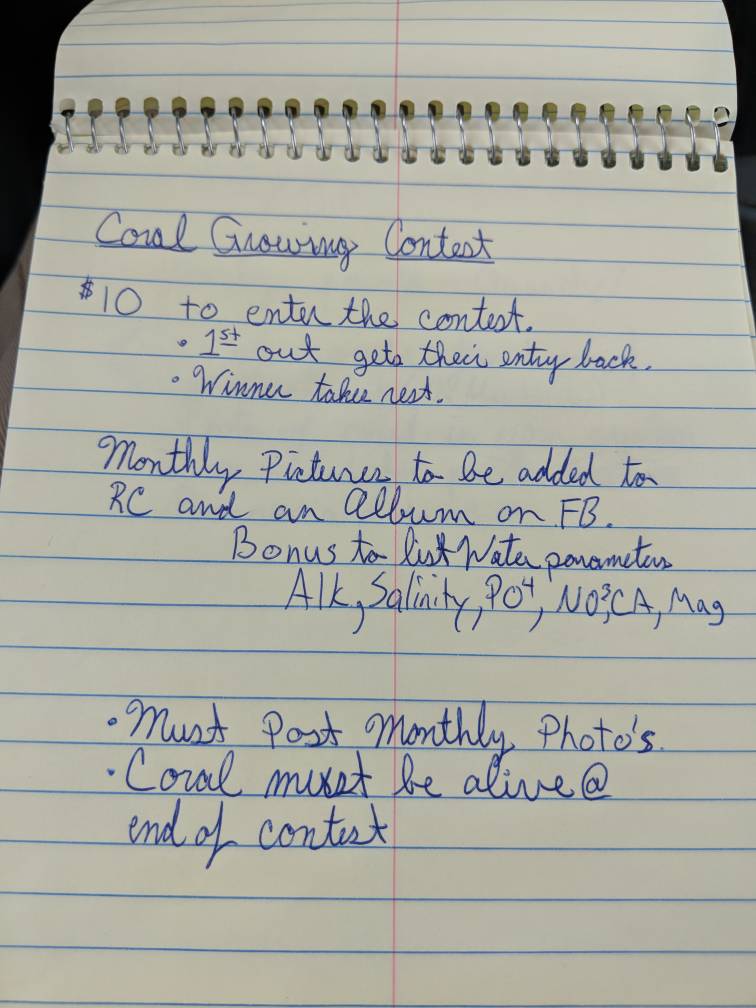 Coral Growing Contest
$10 to enter the contest.
• 1st out gets their entry back.
• Winner takes rest.
Monthly Pictures to be added to
RC and an Album on FB.
Bonus to list Water parameters
Alk, Salinity, PO4, NO3, CA, Mag
• Must Post Monthly Photo's.
• Coral must be alive @
end of contest